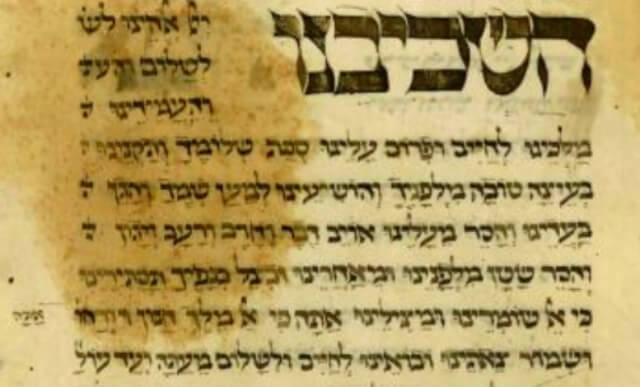 השכיבנו
יי ﭏהינו לש
לשלום והעמ
והעמידינו
מלכינו לחיים ופרוס עלינו סכת שלומך ותקנינו
בעיצה טובה מילפניך והושיעינו למען שמך והגן
בעדינו והסר מעלינו אויב דבר וחרב ורעב ויגון
והסר שטן מלפנינו ומאחרינו ובצל כנפיך תסתירינו
כי ﭏ שומרינו ומצילינו אתה כי ﭏ מלך חנון ורחו
ושמור צאתינו ובואינו לחיים ולשלום מעתה ועד עול